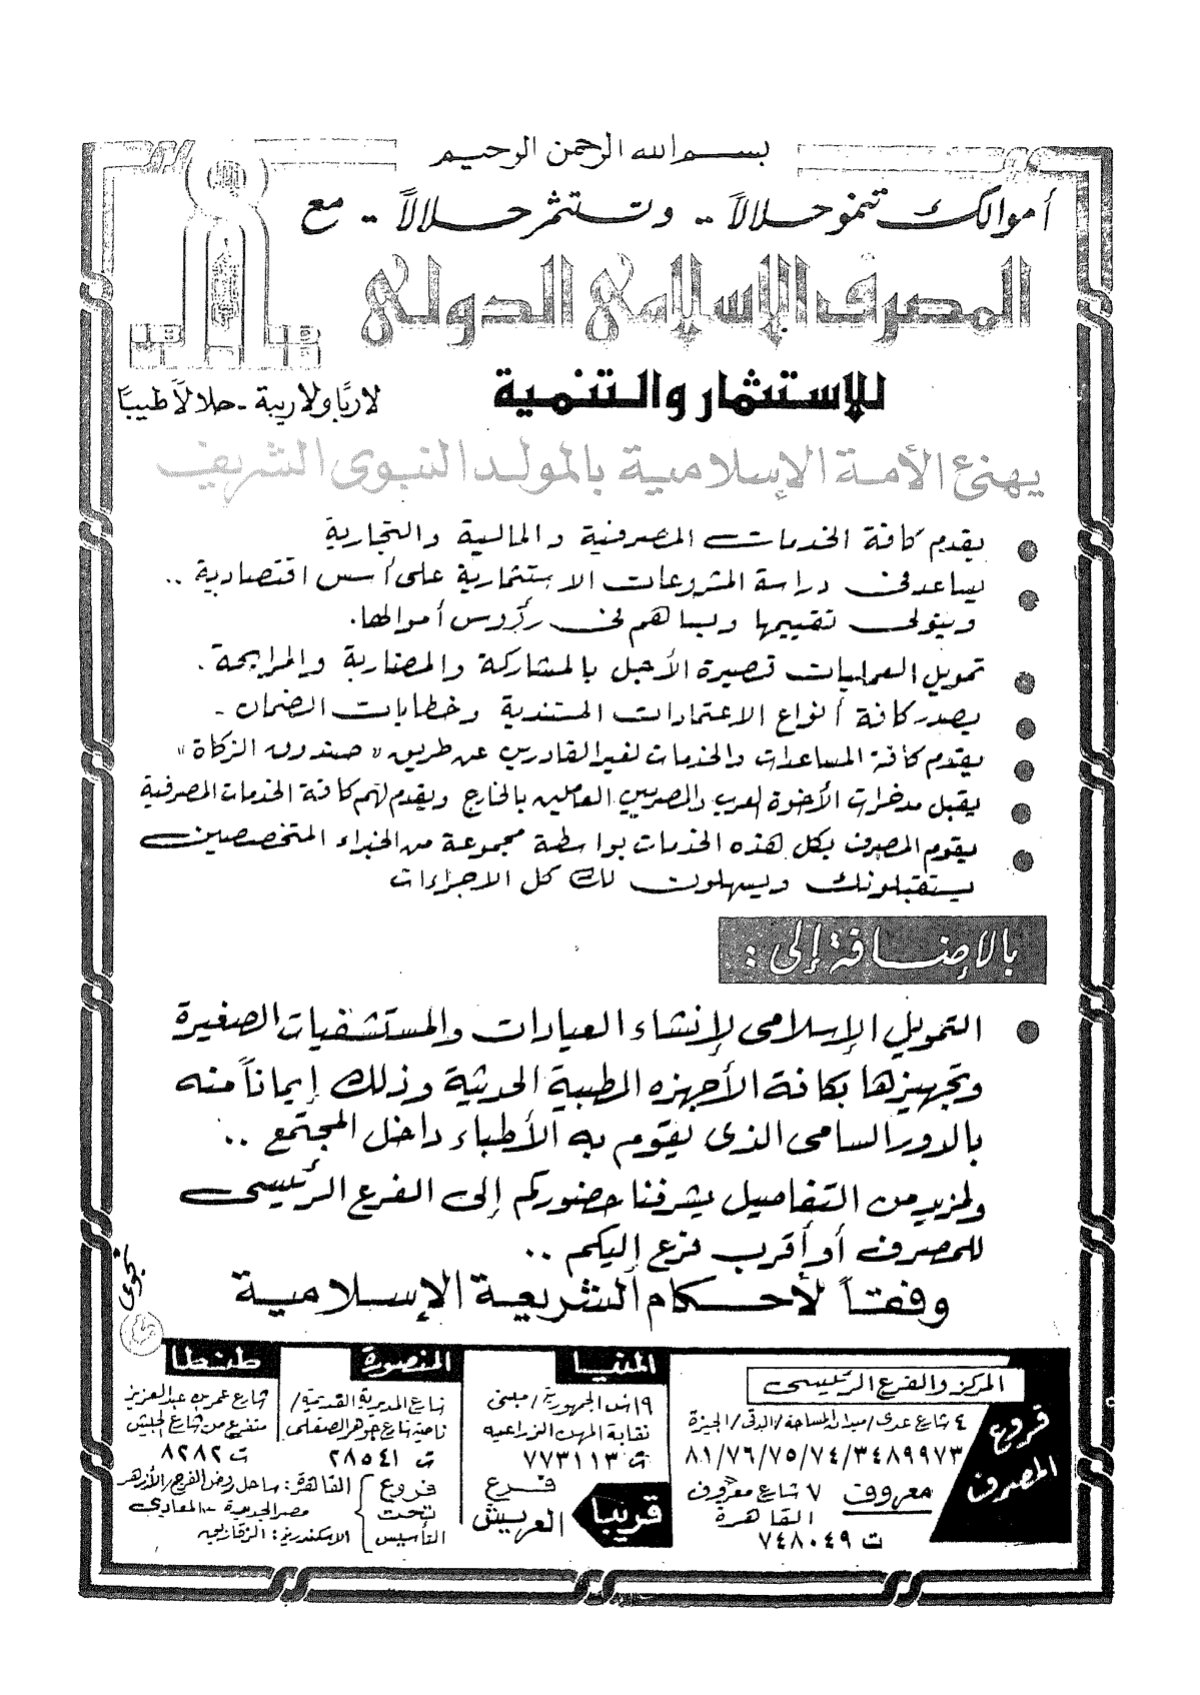 بسم الله الرحمن الرحيم
أموالك تنمو حلالاً .. وتستثمر حلالاً .. مع
المصرف الإسلامى الدولى
للإستثمار والتنمية
لا ربًا ولا ريبة - حلالاً طيبًا
يهنئ الأمة الإسلامية بالمولد النبوى الشريف
● يقدم كافة الخدمات المصرفية والمالية والتجارية
● يساعد فى دراسة المشروعات الاستثمارية على أسس اقتصادية ..
ويتولى تقييمها ويساهم فى رؤوس أموالها.
● تمويل العمليات قصيرة الأجل بالمشاركة والمضاربة والمرابحة.
● يصدر كافة أنواع الاعتمادات المستندية وخطابات الضمان -
● يقدم كافة المساعدات والخدمات لغير القادرين عن طريق « صندوق الزكاة »
● يقبل مدخرات الأخوة العرب والمصريين العاملين بالخارج ويقدم لهم كافة الخدمات المصرفية
● يقوم المصرف بكل هذه الخدمات بواسطة مجموعة من الخبراء المتخصصين
يستقبلونك ويسهلون لك كل الاجراءات
بالإضافة إلى :
● التمويل الإسلامى لإنشاء العيادات والمستشفيات الصغيرة
وتجهيزها بكافة الأجهزه الطبية الحديثة وذلك إيماناً منه
بالدور السامى الذى يقوم به الأطباء داخل المجتمع ..
ولمزيد من التفاصيل يشرفنا حضوركم إلى الفرع الرئيسى
للمصرف أو أقرب فرع إليكم ..
وفقاً لأحكام الشريعة الإسلامية
نجوى
فروع المصرف
المركز والفرع الرئيسى
٤ شارع عدى/ ميدان المساحة/ الدقى/ الجيزة
٨١/٧٦/٧٥/٧٤/٣٤٨٩٩٧٣
معروف ٧ شارع معروف
القاهرة
ت ٧٤٨٠٤٩
المنيا
١٩ ش الجمهورية/ مبنى
نقابة المهن الزراعيه
ت ٧٧٣١١٣
قريبا
فرع
العريش
المنصورة
شارع المديرية القديمة/
ناحية شارع جوهر الصقلى
ت ٢٨٥٤١
طنطا
شارع عمر بن عبدالعزيز
متفرع من شارع الجيش
ت ٨٢٨٢
فروع
تحت
التأسيس
القاهرة: ساحل روض الفرج/ الأزهر
مصر الجديدة - المعادى
الاسكندرية: الزقازيق